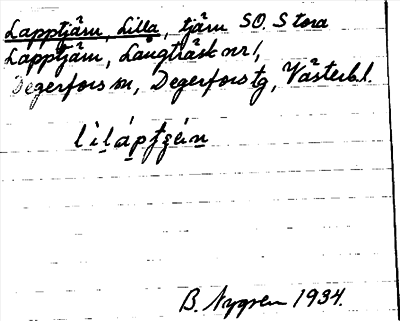 Lapptjärn, Lilla, tjärn SO. Stora
Lapptjärn, Långträsk nr 1,
Degerfors sn, Degerfors tg, Västerb. l.
B. Nygren 1934.